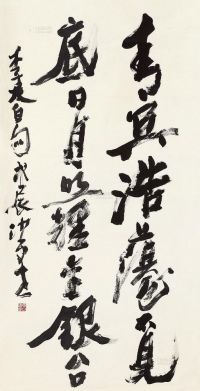 青冥浩荡不见
底日月照耀金银台
李太白句戊辰沙